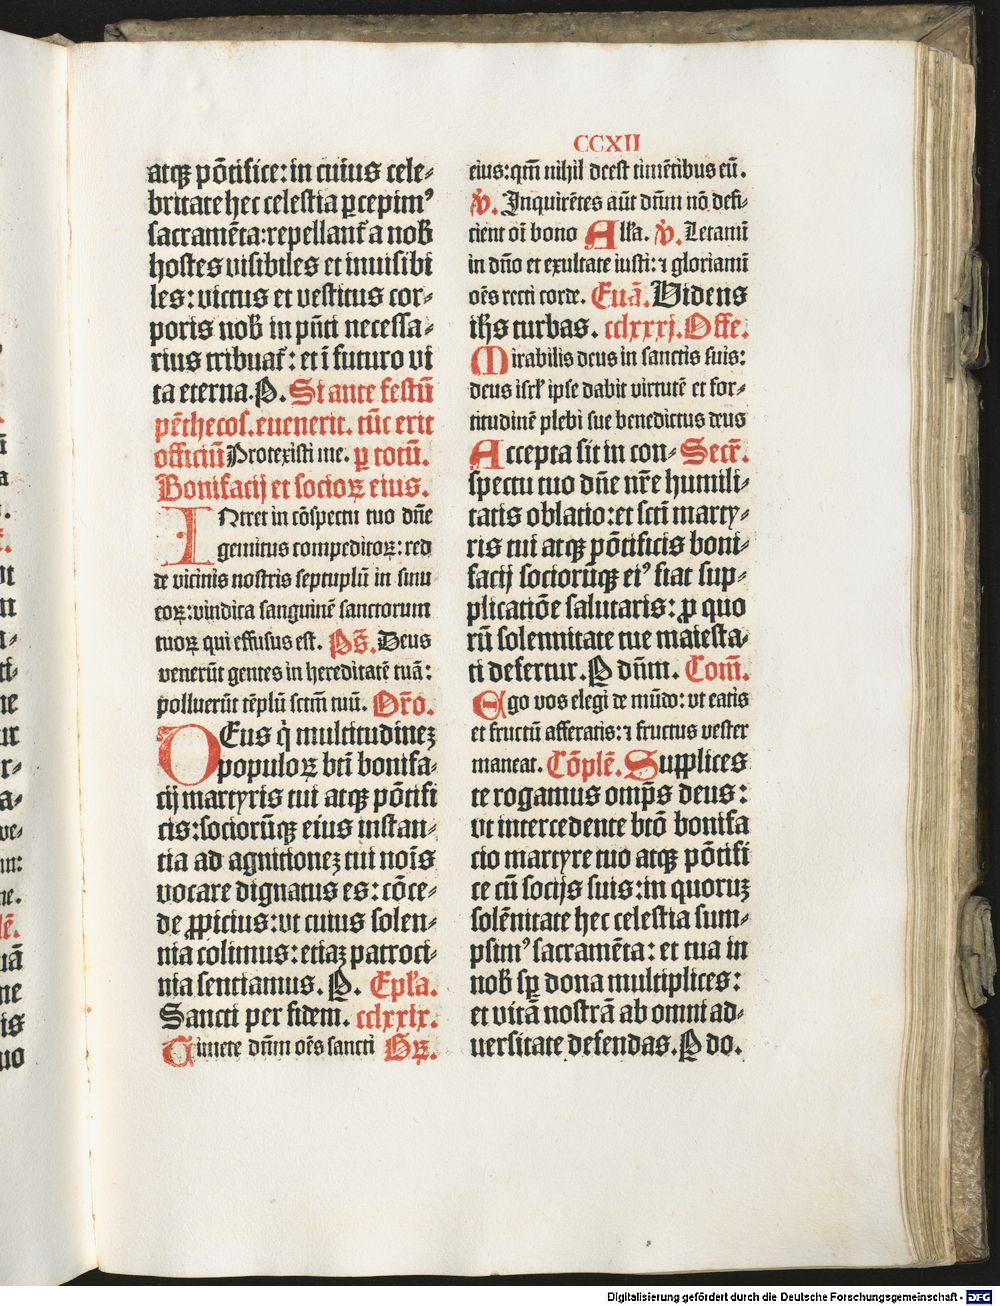 CCXII
atqꝫ põtifice: in cuius cele⸗
britate hec celestia ꝑcepimꝰ
sacramẽta: repellant̃ a nob̃
hostes visibiles et inuisibi
les: victus et vestitus cor⸗
poris nob̃ in pñti necessa⸗
rius tribuat̃: et ĩ futuro vi
ta eterna. P. Si ante festũ
pẽthecos. euenerit. tũc erit
officiũ Protexisti me. ꝑ totũ.
Bonifacij et socioꝝ eius.
INtret in cõspectu tuo dñe
gemitus compeditoꝝ: red
de vicinis nostris septuplũ in sinu
eoꝝ: vindica sanguinẽ sanctorum
tuoꝝ qui effusus est. Ps̃. Deus
venerũt gentes in hereditatẽ tuã:
polluerũt tẽplũ sctm̃ tuũ. Or̃o.
DEus q̇ multitudineꝫ
populoꝝ bti̅ bonifa⸗
cij martyris tui atqꝫ põtifi
cis: sociorũqꝫ eius instan⸗
tia ad agnitioneꝫ tui nois̃
vocare dignatus es: cõce⸗
de ꝓpicius: vt cuius solen⸗
nia colimus: etiaꝫ patroci⸗
nia sentiamus. P. Ep̃la.
Sancti per fidem. cclxxix.
Timete dñm oẽs sancti Gꝝ.
eius: qm̃ nihil deest timẽtibus eũ.
v̇. Inquirẽtes aũt dñm nõ defi⸗
cient oĩ bono All̃a. v̇. Letami
in dño et exultate iusti: ⁊ gloriami
oẽs recti corde. Euã. Videns
ih̃s turbas. cclxxxj. Offe.
Mirabilis deus in sanctis suis:
deus isrl̃ ipse dabit virtutẽ et for⸗
titudinẽ plebi sue benedictus deus
Accepta sit in con⸗ Secr̃.
spectu tuo dñe nr̃e humili⸗
tatis oblatio: et scti̅ marty⸗
ris tui atqꝫ põtificis boni⸗
facij sociorũqꝫ eiꝰ fiat sup⸗
plicatiõe salutaris: ꝓ quo
rũ solennitate tue maiesta⸗
ti defertur. P dñm. Com̃.
Ego vos elegi de mũdo: vt eatis
et fructũ afferatis: ⁊ fructus vester
maneat. Cõplẽ. Supplices
te rogamus omp̃s deus:
vt intercedente btõ bonifa
cio martyre tuo atqꝫ põtifi
ce cũ socijs suis: in quoruꝫ
solẽnitate hec celestia sum⸗
psimꝰ sacramẽta: et tua in
nob̃ sꝑ dona multiplices:
et vitã nostrã ab omni ad⸗
uersitate defendas. P do.
Digitalisierung gefördert durch die Deutsche Forschungsgemeinschaft - DFG